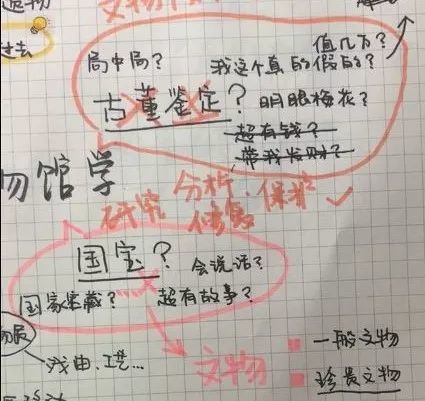 过去
值几万？
局中局？
我这个真的假的？
古董鉴定？
明眼梅花？
超有钱？
带我发财？
物馆学
研究 分析·保护 ✓
修复
国宝？
会说话？
国家宝藏？
超有故事？
戏曲.工艺...
文物
一般文物
珍贵文物